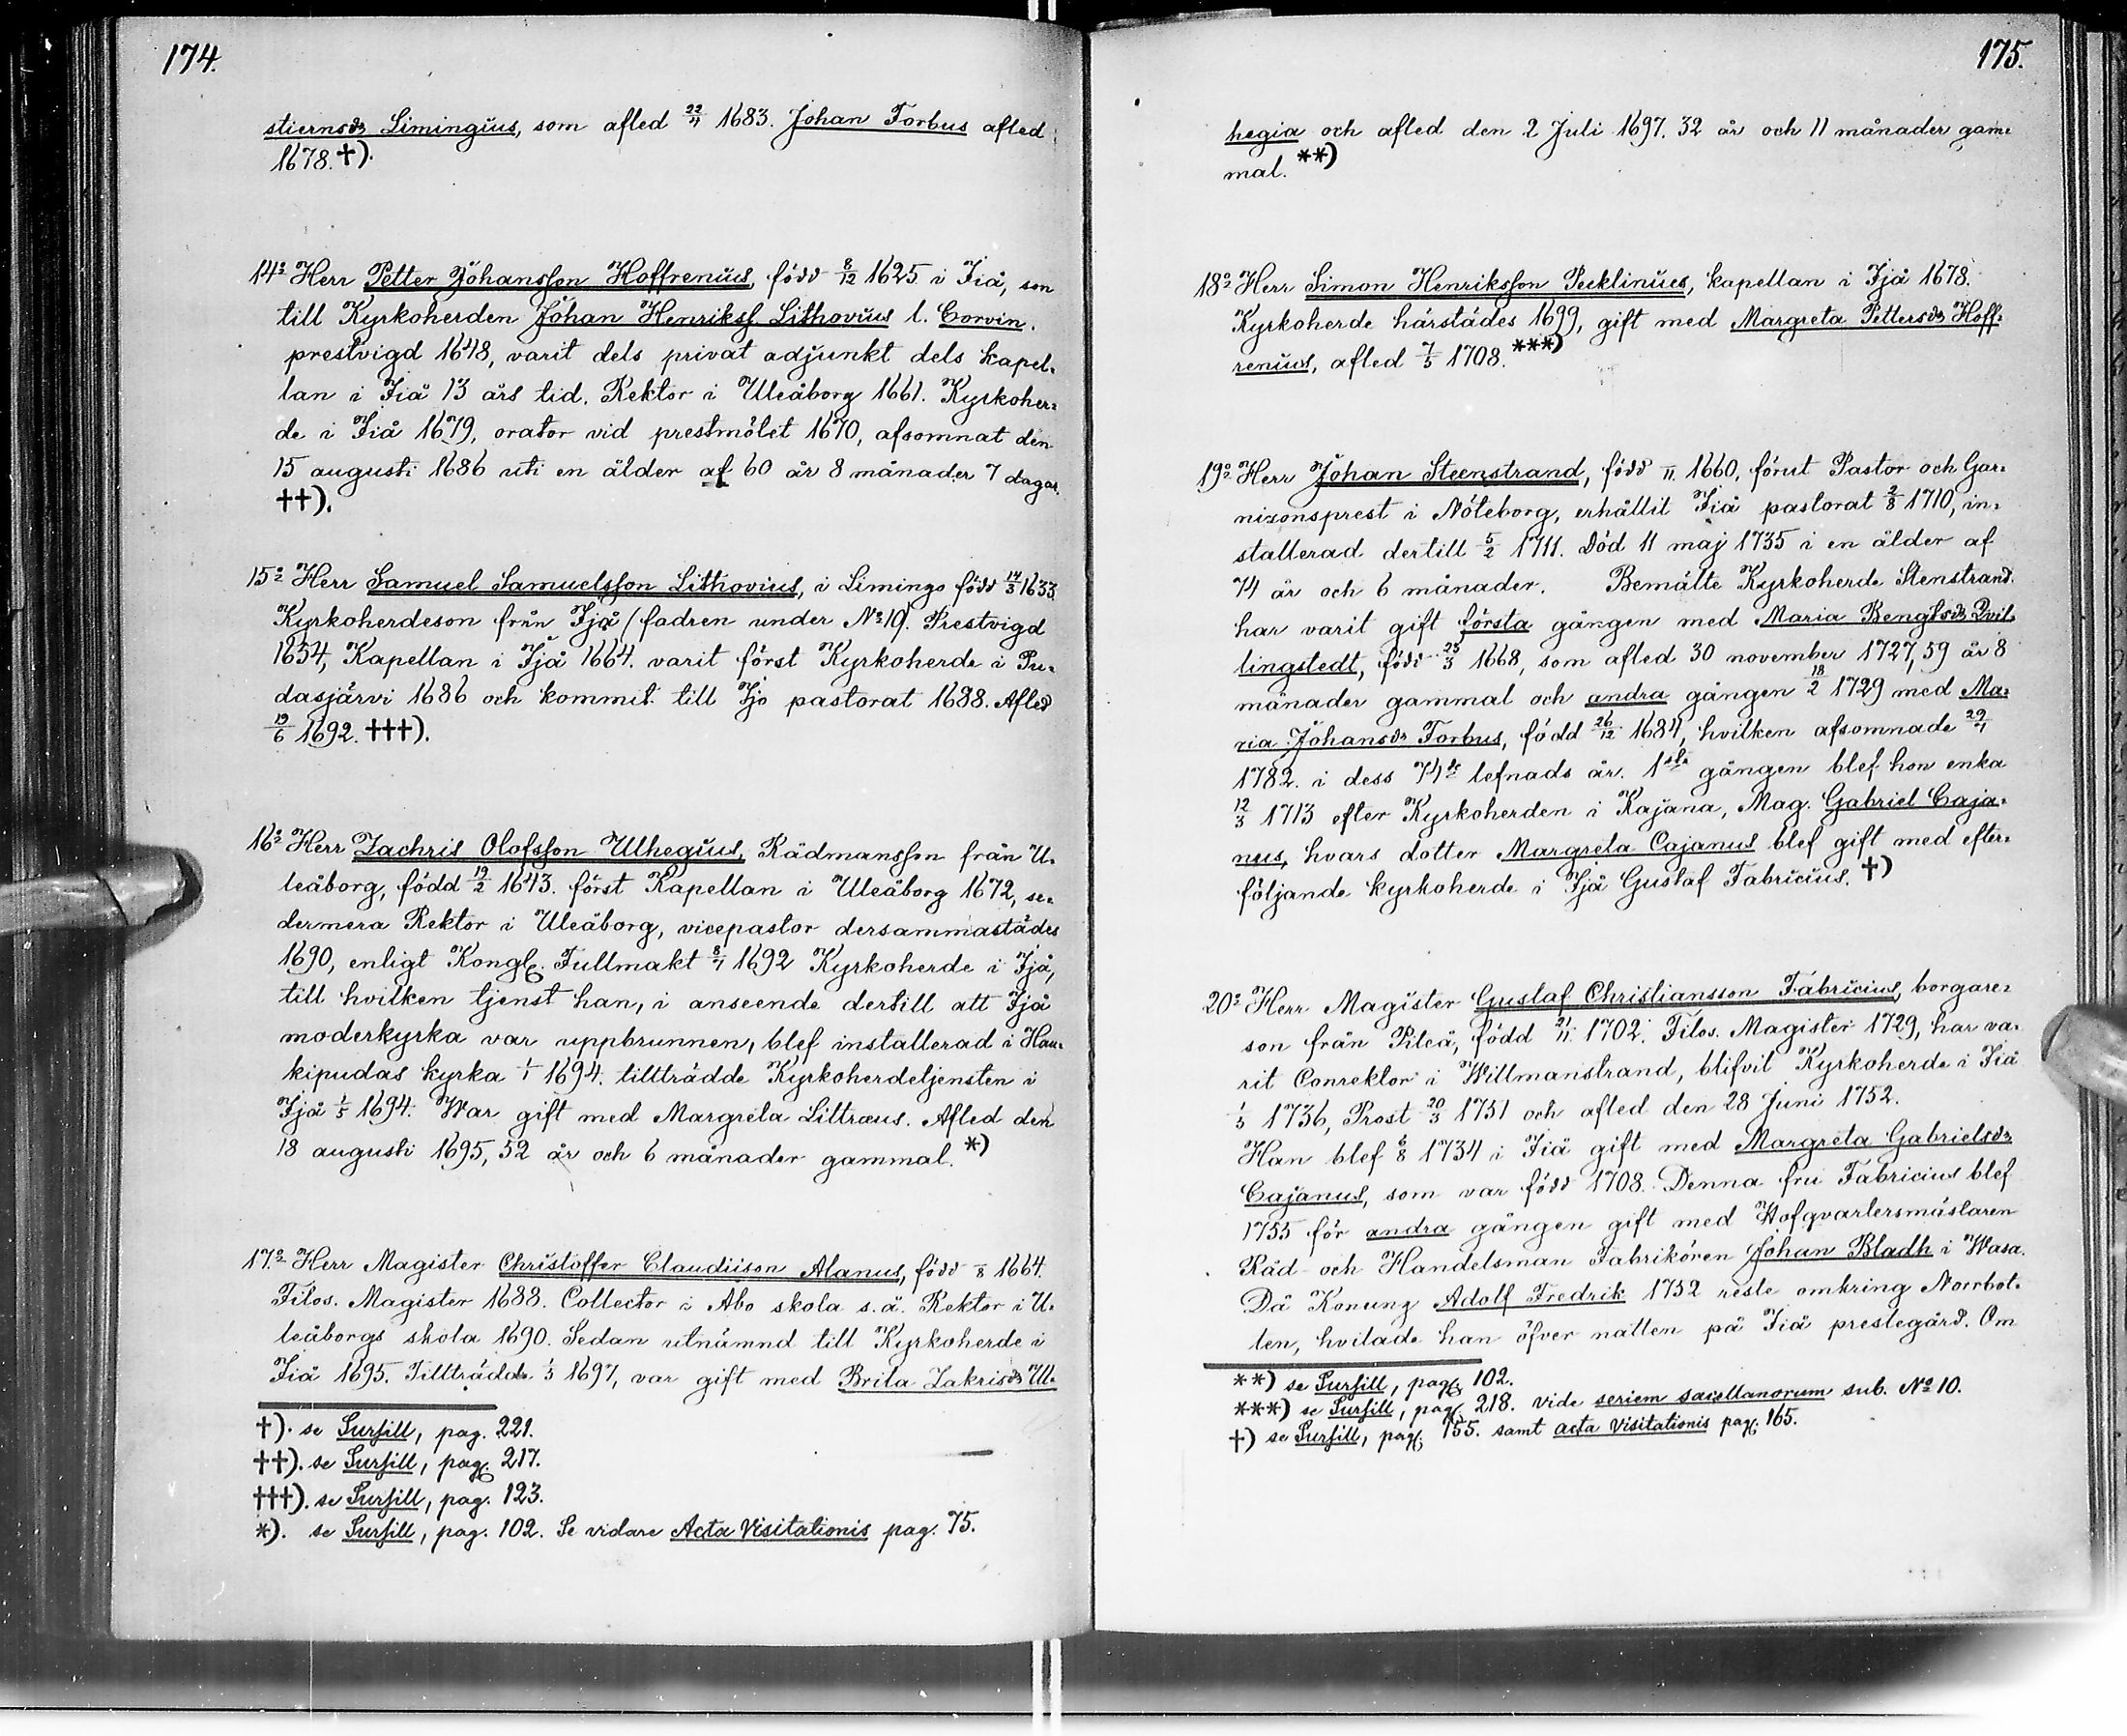 174.
stiernsdr Limingius, som afled 22/4 1683. Johan Forbus afled
1678. †).
14o Herr Petter Johansson Hoffrenius, född 8/12 1625 i Iiå, son
till Kyrkoherden Johan Henrikss. Lithovius l. Corvin.
prestvigd 1648, varit dels privat adjunkt dels kapel-
lan i Iiå 13 års tid. Rektor i Uleåborg 1661. Kyrkoher-
de i Iiå 1679, orator vid prestmötet 1670, afsomnat den
15 augusti 1686 uti en ålder af 60 år 8 månader 7 dagar.
††).
15o Herr Samuel Samuelsson Lithovius, i Limingo född 14/3 1633.
Kyrkoherdeson från Ijå (fadren under No 10). Prestvigd
1654, Kapellan i Ijå 1664. varit först Kyrkoherde i Pu-
dasjärvi 1686 och kommit till Ijo pastorat 1688. Afled
19/6 1692. †††).
16o Herr Zachris Olofsson Ulhegius, Rådmansson från U-
leåborg, född 19/2 1643. först Kapellan i Uleåborg 1672, se-
dermera Rektor i Uleåborg, vicepastor dersammastädes
1690, enligt Kongl. Fullmakt 8/7 1692 Kyrkoherde i Ijå,
till hvilken tjenst han, i anseende dertill att Ijå
moderkyrka var uppbrunnen, blef installerad i Hau-
kipudas kyrka 1/1 1694. tillträdde Kyrkoherdetjensten i
Ijå 1/5 1694. War gift med Margreta Littræus. Afled den
18 augusti 1695, 52 år och 6 månader gammal. *)
17o Herr Magister Christoffer Claudiison Alanus, född /8 1664.
Filos. Magister 1688. Collector i Åbo skola s.å. Rektor i U-
leåborgs skola 1690. Sedan utnämnd till Kyrkoherde i
Iiå 1695. Tillträdde 1/5 1697, var gift med Brita Zakrisdr Ul-
†). se Surfill, pag. 221.
††). se Surfill, pag. 217.
†††). se Surfill, pag. 123.
*). se Surfill, pag. 102. Se vidare Acta Visitationis pag. 75.
175.
hegia och afled den 2 Juli 1697. 32 år och 11 månader gam-
mal. **)
18o Herr Simon Henriksson Pecklinius, kapellan i Ijå 1678.
Kyrkoherde härstädes 1699, gift med Margreta Pettersdr Hoff-
renius, afled 7/5 1708. ***)
19o Herr Johan Steenstrand, född /11 1660, förut Pastor och Gar-
nizonsprest i Nöteborg, erhållit Iiå pastorat 2/8 1710, in-
stallerad dertill 5/2 1711. Död 11 maj 1735 i en ålder af
74 år och 6 månader. Bemälte Kyrkoherde Stenstrand
har varit gift första gången med Maria Bengtsdr Qvil-
lingstedt, född 25/3 1668, som afled 30 november 1727, 59 år 8
månader gammal och andra gången 18/2 1729 med Ma-
ria Johansdr Forbus, född 26/12 1684, hvilken afsomnade 29/1
1782. i dess 74de lefnads år. 1sta gången blef hon enka
12/3 1713 efter Kyrkoherden i Kajana, Mag. Gabriel Caja-
nus, hvars dotter Margreta Cajanus blef gift med efter-
följande kyrkoherde i Ijå Gustaf Fabricius. †)
20o Herr Magister Gustaf Christiansson Fabricius, borgare-
son från Piteå, född 21/11 1702. Filos. Magister 1729, har va-
rit Conrektor i Willmanstrand, blifvit Kyrkoherde i Iiå
1/5 1736, Prost 20/3 1751 och afled den 28 Juni 1752.
Han blef 6/8 1734 i Iiå gift med Margreta Gabrielsdr
Cajanus, som var född 1708. Denna fru Fabricius blef
1755 för andra gången gift med Hofqvartersmästaren
Råd- och Handelsman Fabrikören Johan Bladh i Wasa.
Då Konung Adolf Fredrik 1752 reste omkring Norrbot-
ten, hvilade han öfver natten på Iiå prestegård. Om
**) se Surfill, pag. 102.
***) se Surfill, pag. 218. vide seriem sacellanorum sub. No 10.
†) se Surfill, pag. 155. samt acta visitationis pag. 165.